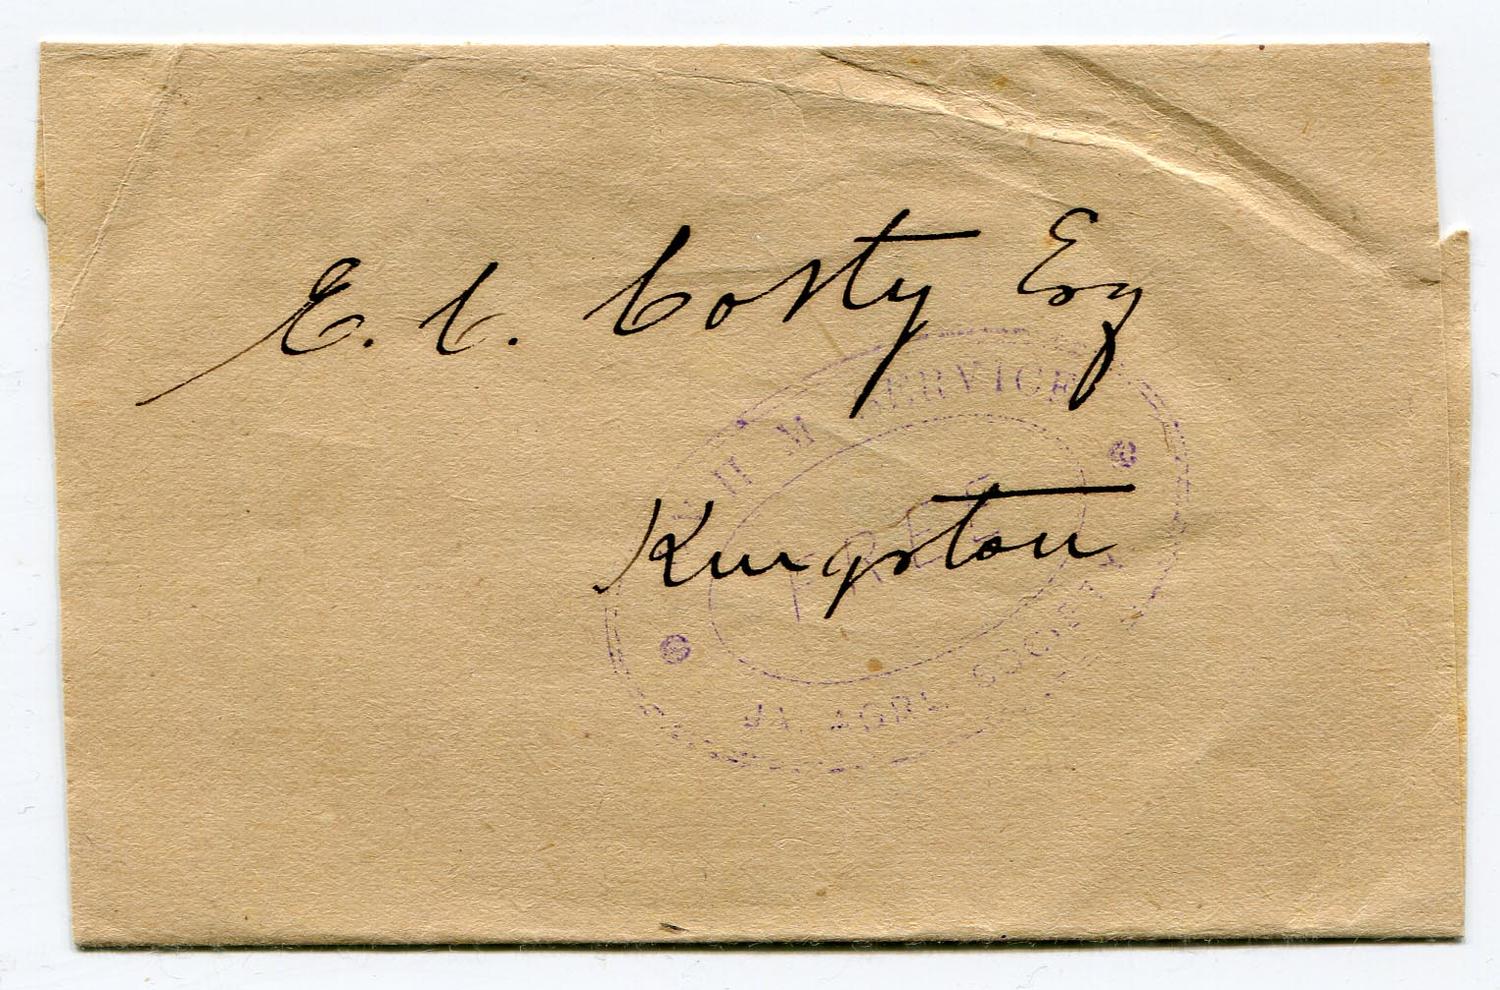 E. C. Costy Esq
Kingston
H M SERVICE
FREE
JA. AGRL. SOCIETY